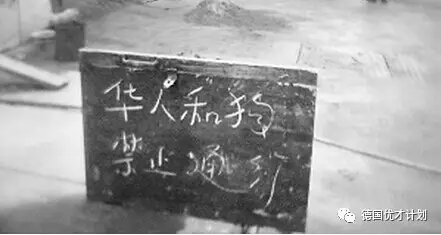 华人和狗
禁止通行
德国优才计划